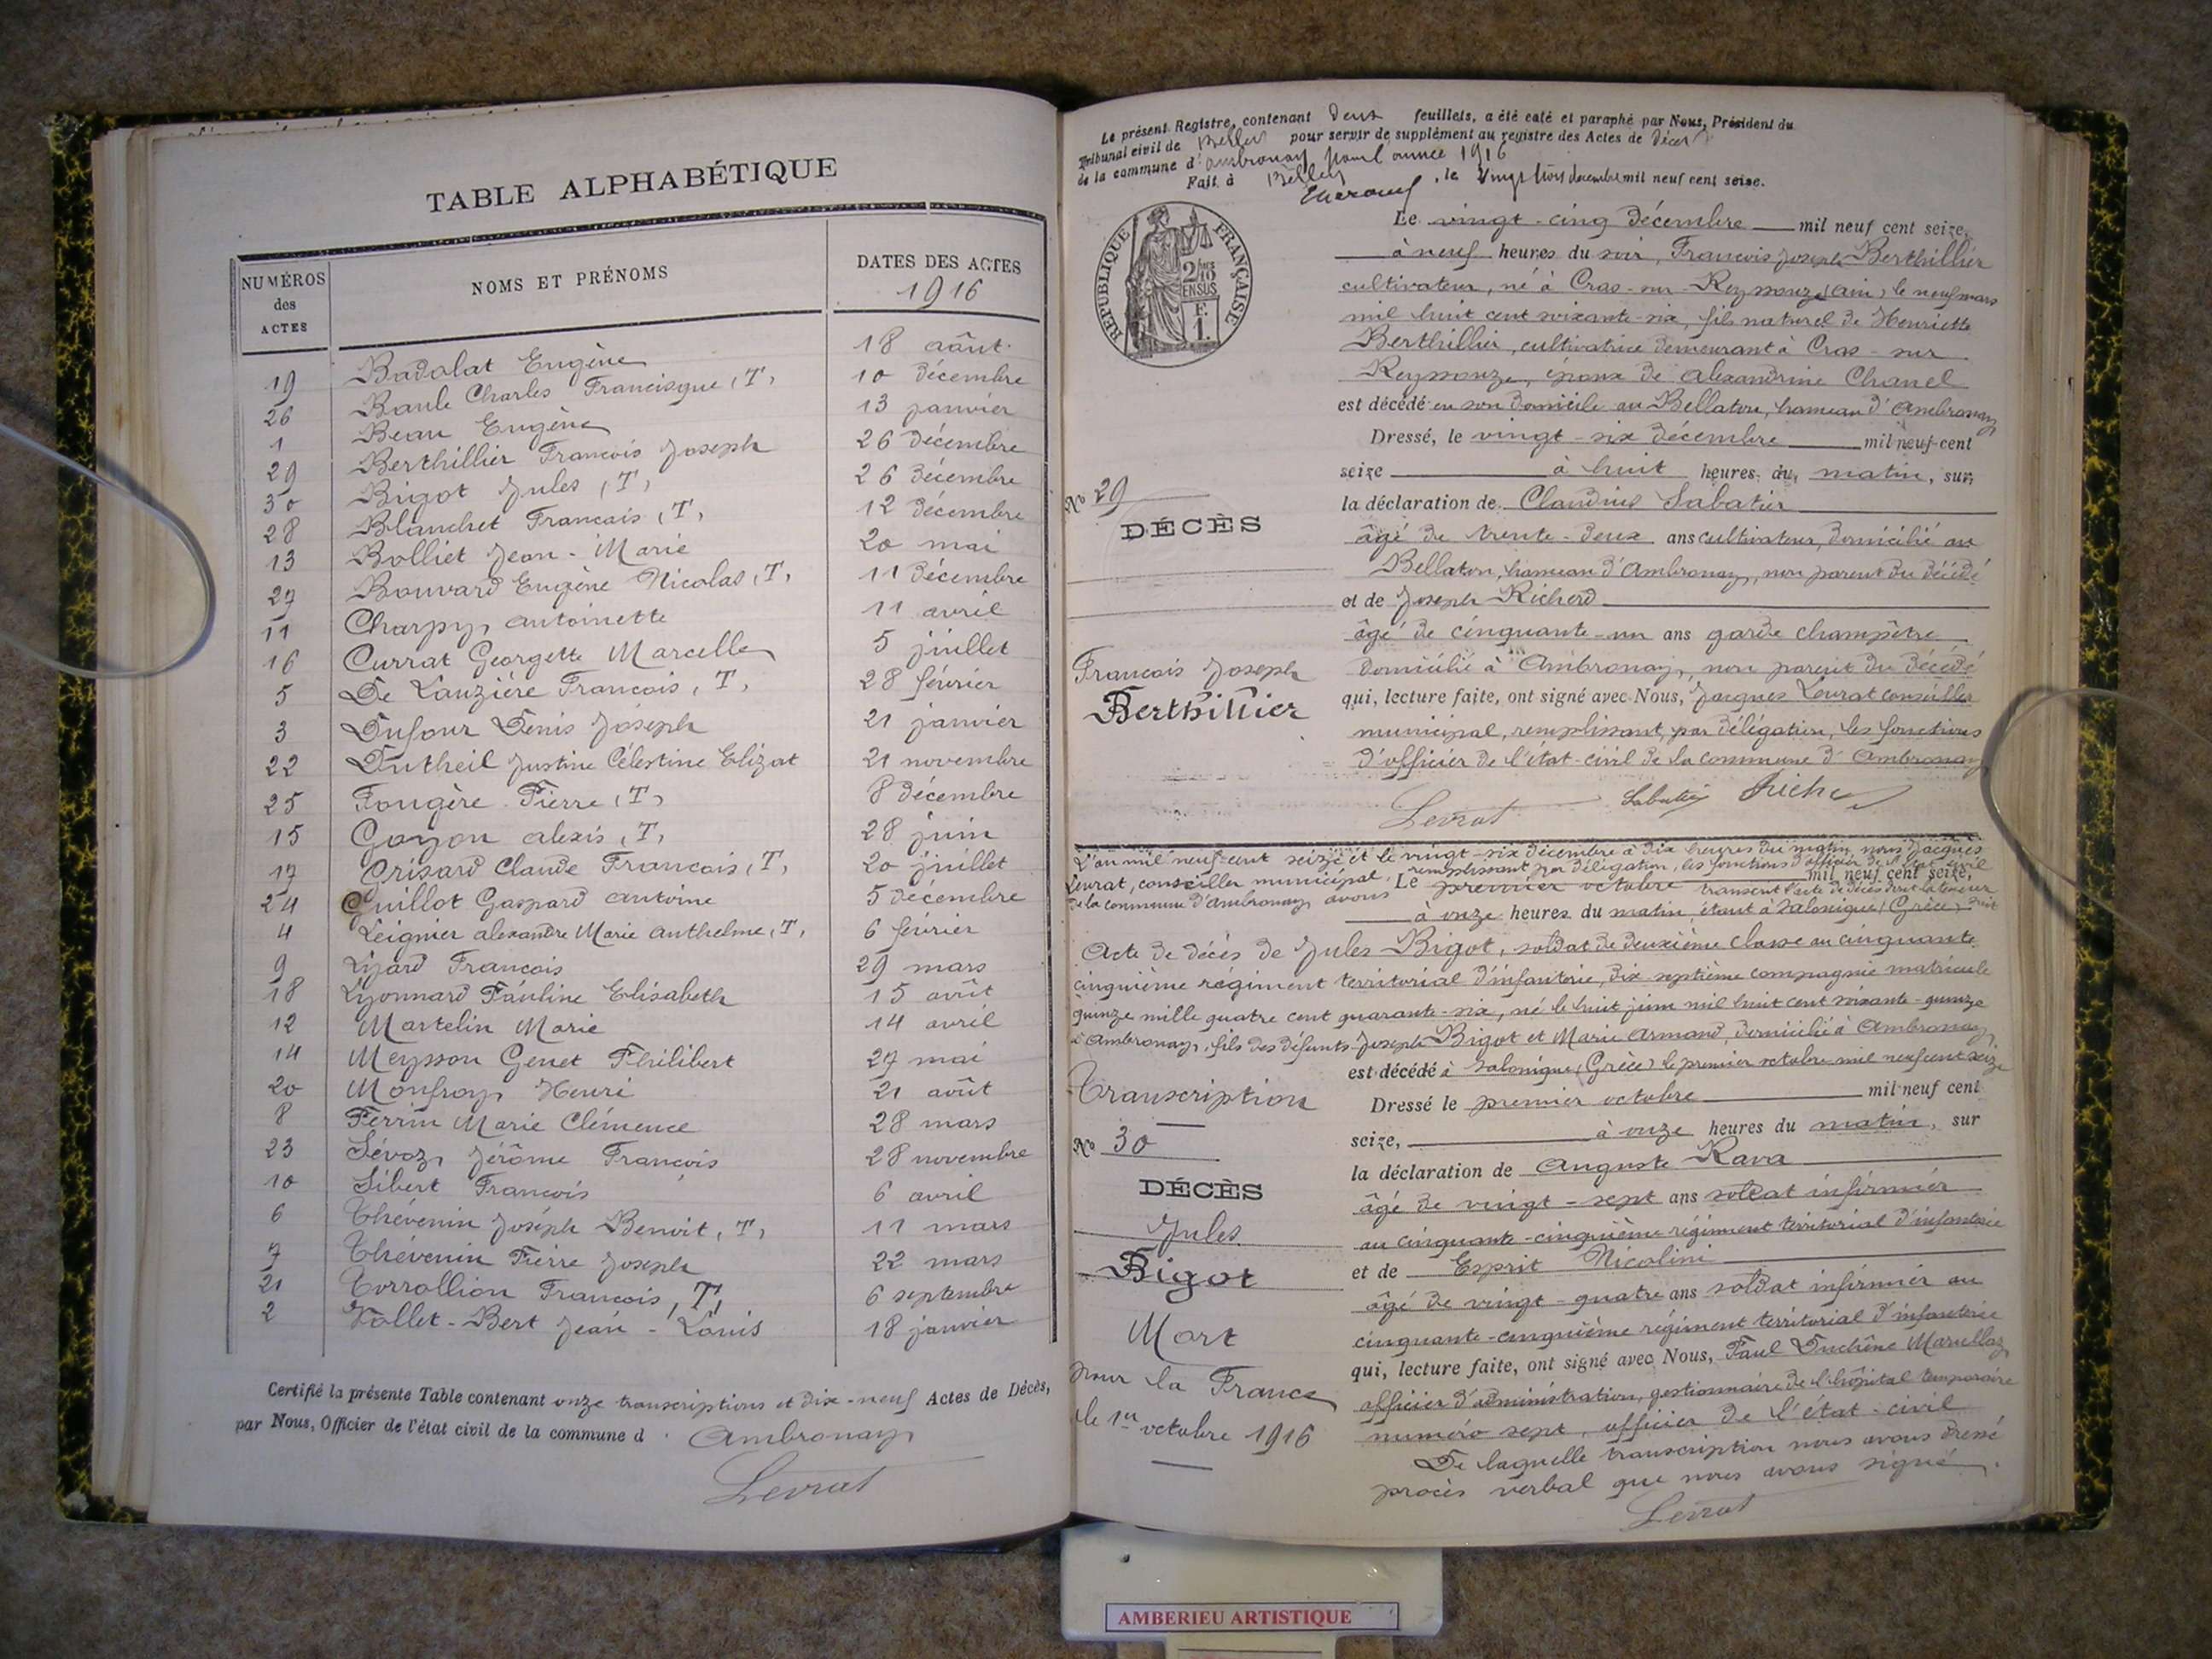 TABLE ALPHABÉTIQUE
NUMÉROS des ACTES
NOMS ET PRÉNOMS
DATES DES ACTES
1916
19 Badolat Eugène 18 août
26 Baule Charles Francisque (T) 10 décembre
1 Beau Eugène 13 janvier
29 Berthillier François Joseph 26 décembre
30 Bigot Jules (T) 26 décembre
28 Blanchet Francais (T) 12 décembre
13 Bolliet Jean-Marie 20 mai
27 Bouvard Eugène Nicolas (T) 11 décembre
11 Charpy Antoinette 11 avril
16 Currat Georgette Marcelle 5 juillet
5 De Lauzière François (T) 28 février
3 Dufour Denis Joseph 21 janvier
22 Dutheil Justine Célestine Elizat 21 novembre
25 Fougère Pierre (T) 8 décembre
15 Goyon Alexis (T) 28 juin
17 Grisard Claude Francois (T) 20 juillet
24 Guillot Gaspard Antoine 5 décembre
4 Leignier Alexandre Marie Anthelme (T) 6 février
9 Lyard François 29 mars
18 Lyonnard Pauline Elisabeth 15 août
12 Martelin Marie 14 avril
14 Meysson Genet Philibert 27 mai
20 Monfroy Henri 21 août
8 Perrin Marie Clémence 28 mars
23 Sévoz Jérôme François 28 novembre
10 Sibert François 6 avril
6 Thévenin Joseph Benoit (T) 11 mars
7 Thévenin Pierre Joseph 22 mars
21 Torrollion François (T) 6 septembre
2 Vollet-Bert Jean-Louis 18 janvier
Certifié la présente Table contenant onze transcriptions et dix-neuf Actes de Décès,
par Nous, Officier de l'état civil de la commune d Ambronay
Levrat
Le présent Registre, contenant deux feuillets, a été coté et paraphé par Nous, Président du
Tribunal civil de Belley pour servir de supplément au registre des Actes de décès
de la commune d'Ambronay pour l'année 1916
Fait à Belley, le vingt trois décembre mil neuf cent seize.
RÉPUBLIQUE FRANÇAISE
2/10
EN SUS
F.
1.
Le vingt-cinq décembre mil neuf cent seize,
à neuf heures du soir, François Joseph Berthillier
cultivateur, né à Cras-sur-Reyssouze (Ain) le neuf mars
mil huit cent soixante-six, fils naturel de Henriette
Berthillier, cultivatrice demeurant à Cras-sur
Reyssouze, époux de Alexandrine Chanel
est décédé en son domicile au Bellaton, hameau d'Ambronay
Dressé, le vingt-six décembre mil neuf cent
seize à huit heures du matin, sur
No 29
DÉCÈS
François Joseph
Berthillier
la déclaration de Claudius Sabatier
âgé de trente-deux ans cultivateur, domicilié au
Bellaton, hameau d'Ambronay, non parent du décédé
et de Joseph Richerd
âgé de cinquante-un ans garde champêtre
domicilié à Ambronay, non parent du décédé
qui, lecture faite, ont signé avec Nous, Jacques Levrat conseiller
municipal, remplissant, par délégation, les fonctions
d'officier de l'état-civil de la commune d'Ambronay
Levrat Sabatier Riche
L'an mil neuf cent seize et le vingt-six décembre à dix heures du matin, nous Jacques
Levrat, conseiller municipal, remplissant par délégation, les fonctions d'officier de l'état civil
de la commune d'Ambronay avons transcrit l'acte de décès dont la teneur suit
Le premier octobre mil neuf cent seize,
à onze heures du matin, étant à Salonique (Grèce)
Acte de décès de Jules Bigot, soldat de deuxième classe au cinquante
cinquième régiment territorial d'infanterie, dix septième compagnie matricule
quinze mille quatre cent quarante-six, né le huit juin mil huit cent soixante-quinze
à Ambronay, fils des défunts Joseph Bigot et Marie Armand, domicilié à Ambronay,
est décédé à Salonique (Grèce) le premier octobre mil neuf cent seize
Transcription
No 30
DÉCÈS
Jules
Bigot
Mort
pour la France
le 1er octobre 1916
Dressé le premier octobre mil neuf cent
seize, à onze heures du matin, sur
la déclaration de Auguste Rava
âgé de vingt-sept ans soldat infirmier
au cinquante-cinquième régiment territorial d'infanterie
et de Esprit Nicolini
âgé de vingt-quatre ans soldat infirmier au
cinquante-cinquième régiment territorial d'infanterie
qui, lecture faite, ont signé avec Nous, Paul Duchêne Marullaz
officier d'administration, gestionnaire de l'hôpital temporaire
numéro sept, officier de l'état-civil
De laquelle transcription nous avons dressé
procès verbal que nous avons signé.
Levrat
AMBERIEU ARTISTIQUE